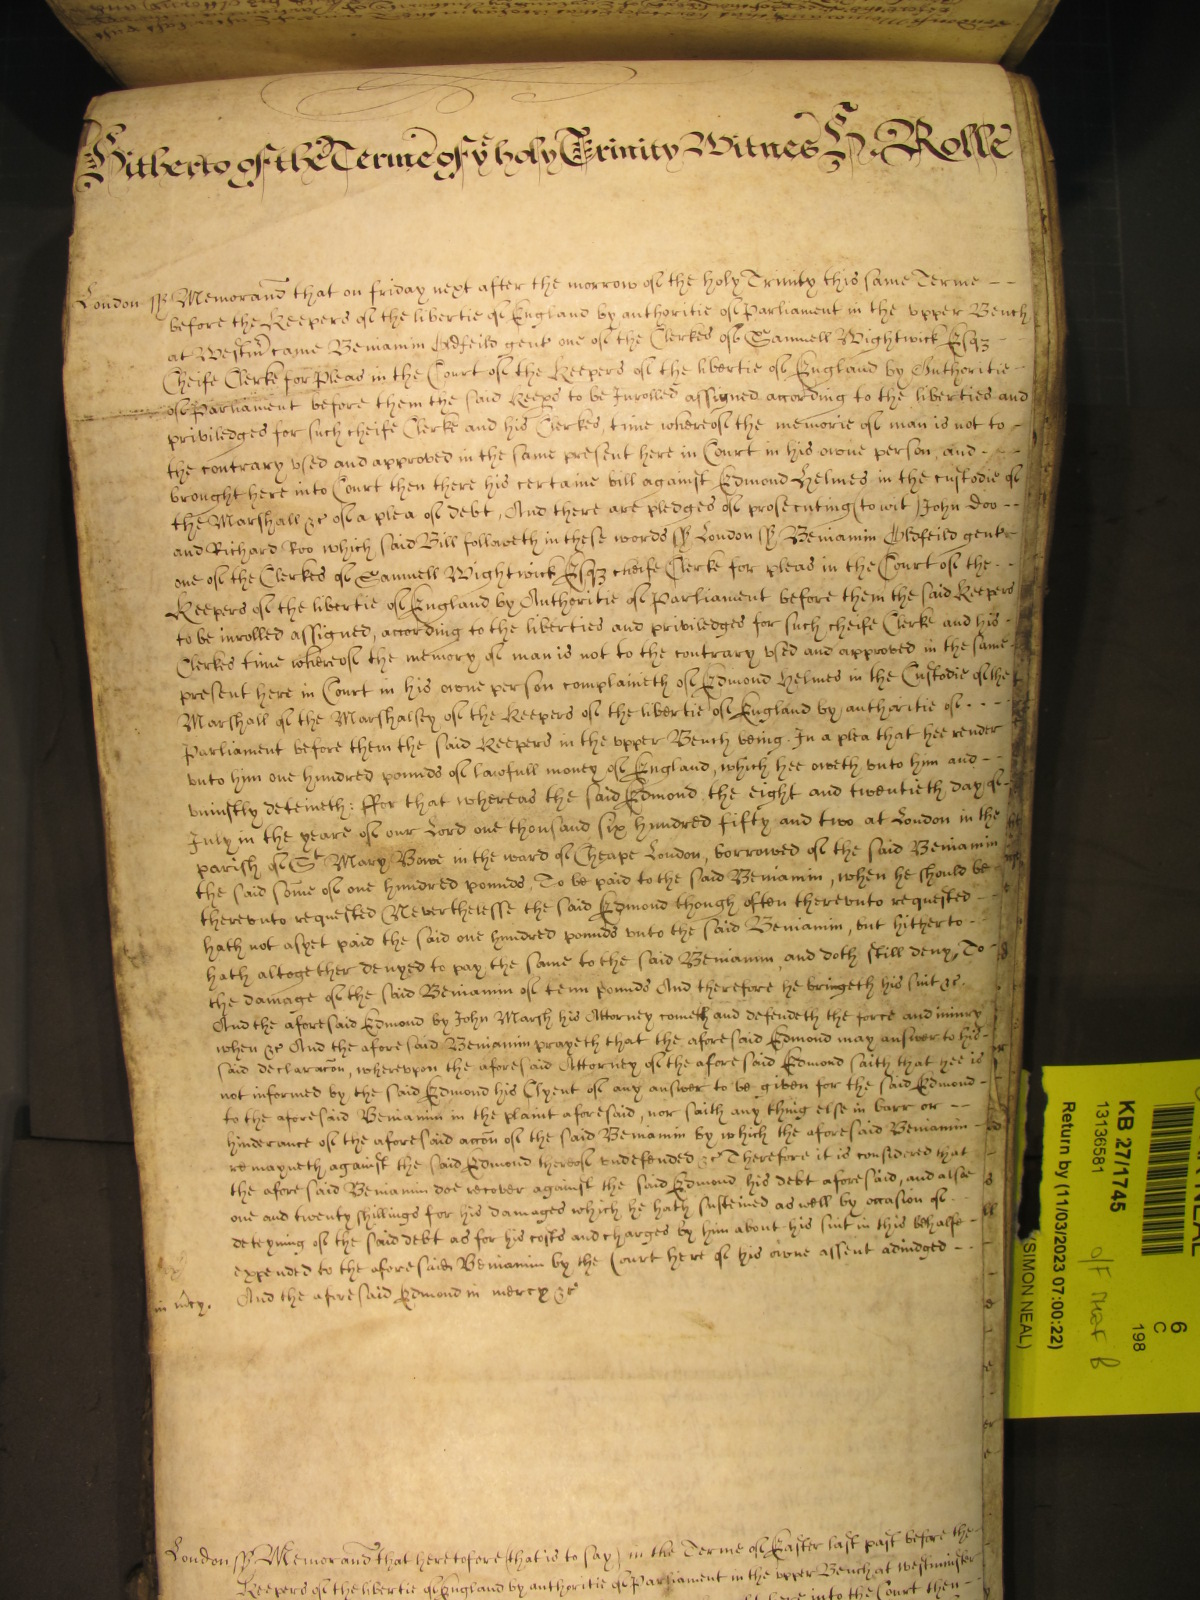 Hitherto of the Terme of ye holy Trinity Witnes H. Rolle
London ss Memorand that on friday next after the morrow of the holy Trinity this same Terme
before the Keepers of the libertie of England by authoritie of Parliament in the vpper Bench
at Westm came Beniamin Oldfeild gent one of the Clerkes of Samuell Wightwick Esqz
Cheife Clerke for Pleas in the Court of the Keepers of the libertie of England by Authoritie
of Parliament before them the said Keeps to be Inrolled assigned according to the liberties and
priviledges for such cheife Clerke and his Clerkes, time whereof the memorie of man is not to
the contrary vsed and approved in the same present here in Court in his owne person, and
brought here into Court then there his certaine bill against Edmond Helmes in the custodie of
the Marshall &c of a plea of debt, And there are pledges of prosecuting to wit John Doo
and Richard Roo which said Bill followeth in these words ss London ss Beniamin Oldfeild gent
one of the Clerkes of Samuell Wightwick Esqz cheife Clerke for pleas in the Court of the
Keepers of the libertie of England by Authoritie of Parliament before them the said Keepers
to be inrolled assigned, according to the liberties and priviledges for such cheife Clerke and his
Clerkes time whereof the memory of man is not to the contrary vsed and approved in the same
present here in Court in his owne person complaineth of Edmond Helmes in the Custodie of the
Marshall of the Marshalsey of the Keepers of the libertie of England by authoritie of
Parliament before them the said Keepers in the vpper Bench being. In a plea that hee render
vnto him one hundred pounds of lawfull money of England, which hee oweth vnto him and
vniustly deteineth: ffor that whereas the said Edmond the eight and twentieth day of
July in the yeare of our Lord one thousand six hundred fifty and two at London in the
parish of St Mary Bowe in the ward of Cheape London, borrowed of the said Beniamin
the said some of one hundred pounds, To be paid to the said Beniamin, when he should be
therevnto requested Neverthelesse the said Edmond though often therevnto requested
hath not as yet paid the said one hundred pounds vnto the said Beniamin, but hitherto
hath altogether denyed to pay the same to the said Beniamin and doth still deny, To
the damage of the said Beniamin of tenn pounds And therefore he bringeth his suit &c.
And the aforesaid Edmond by John Marsh his Attorney cometh and defendeth the force and iniury
when &c And the aforesaid Beniamin prayeth that the aforesaid Edmond may answer to his
said declaracon, wherevpon the aforesaid Attorney of the aforesaid Edmond saith that hee is
not informed by the said Edmond his Clyent of any answer to be given for the said Edmond
to the aforesaid Beniamin in the plaint aforesaid, nor saith any thing else in barr or
hinderance of the aforesaid accon of the said Beniamin by which the aforesaid Beniamin
remayneth against the said Edmond thereof vndefended &c Therefore it is considered that
the aforesaid Beniamin doe recover against the said Edmond his debt aforesaid, and alsoe
one and twenty shillings for his damages which he hath susteined as well by occasion of
deteyning of the said debt as for his costs and charges by him about his suit in this behalfe
expended to the aforesaid Beniamin by the Court here of his owne assent adiudged
in mcy. And the aforesaid Edmond in mercy &c
London ss Memorand that heretofore (that is to say) in the Terme of Easter last past before the
Keepers of the libertie of England by authoritie of Parliament in the vpper Bench at westminster
here into the Court then
KB 27/1745
13136581
Return by (11/03/2023 07:00:22)
(SIMON NEAL)
198
6
C